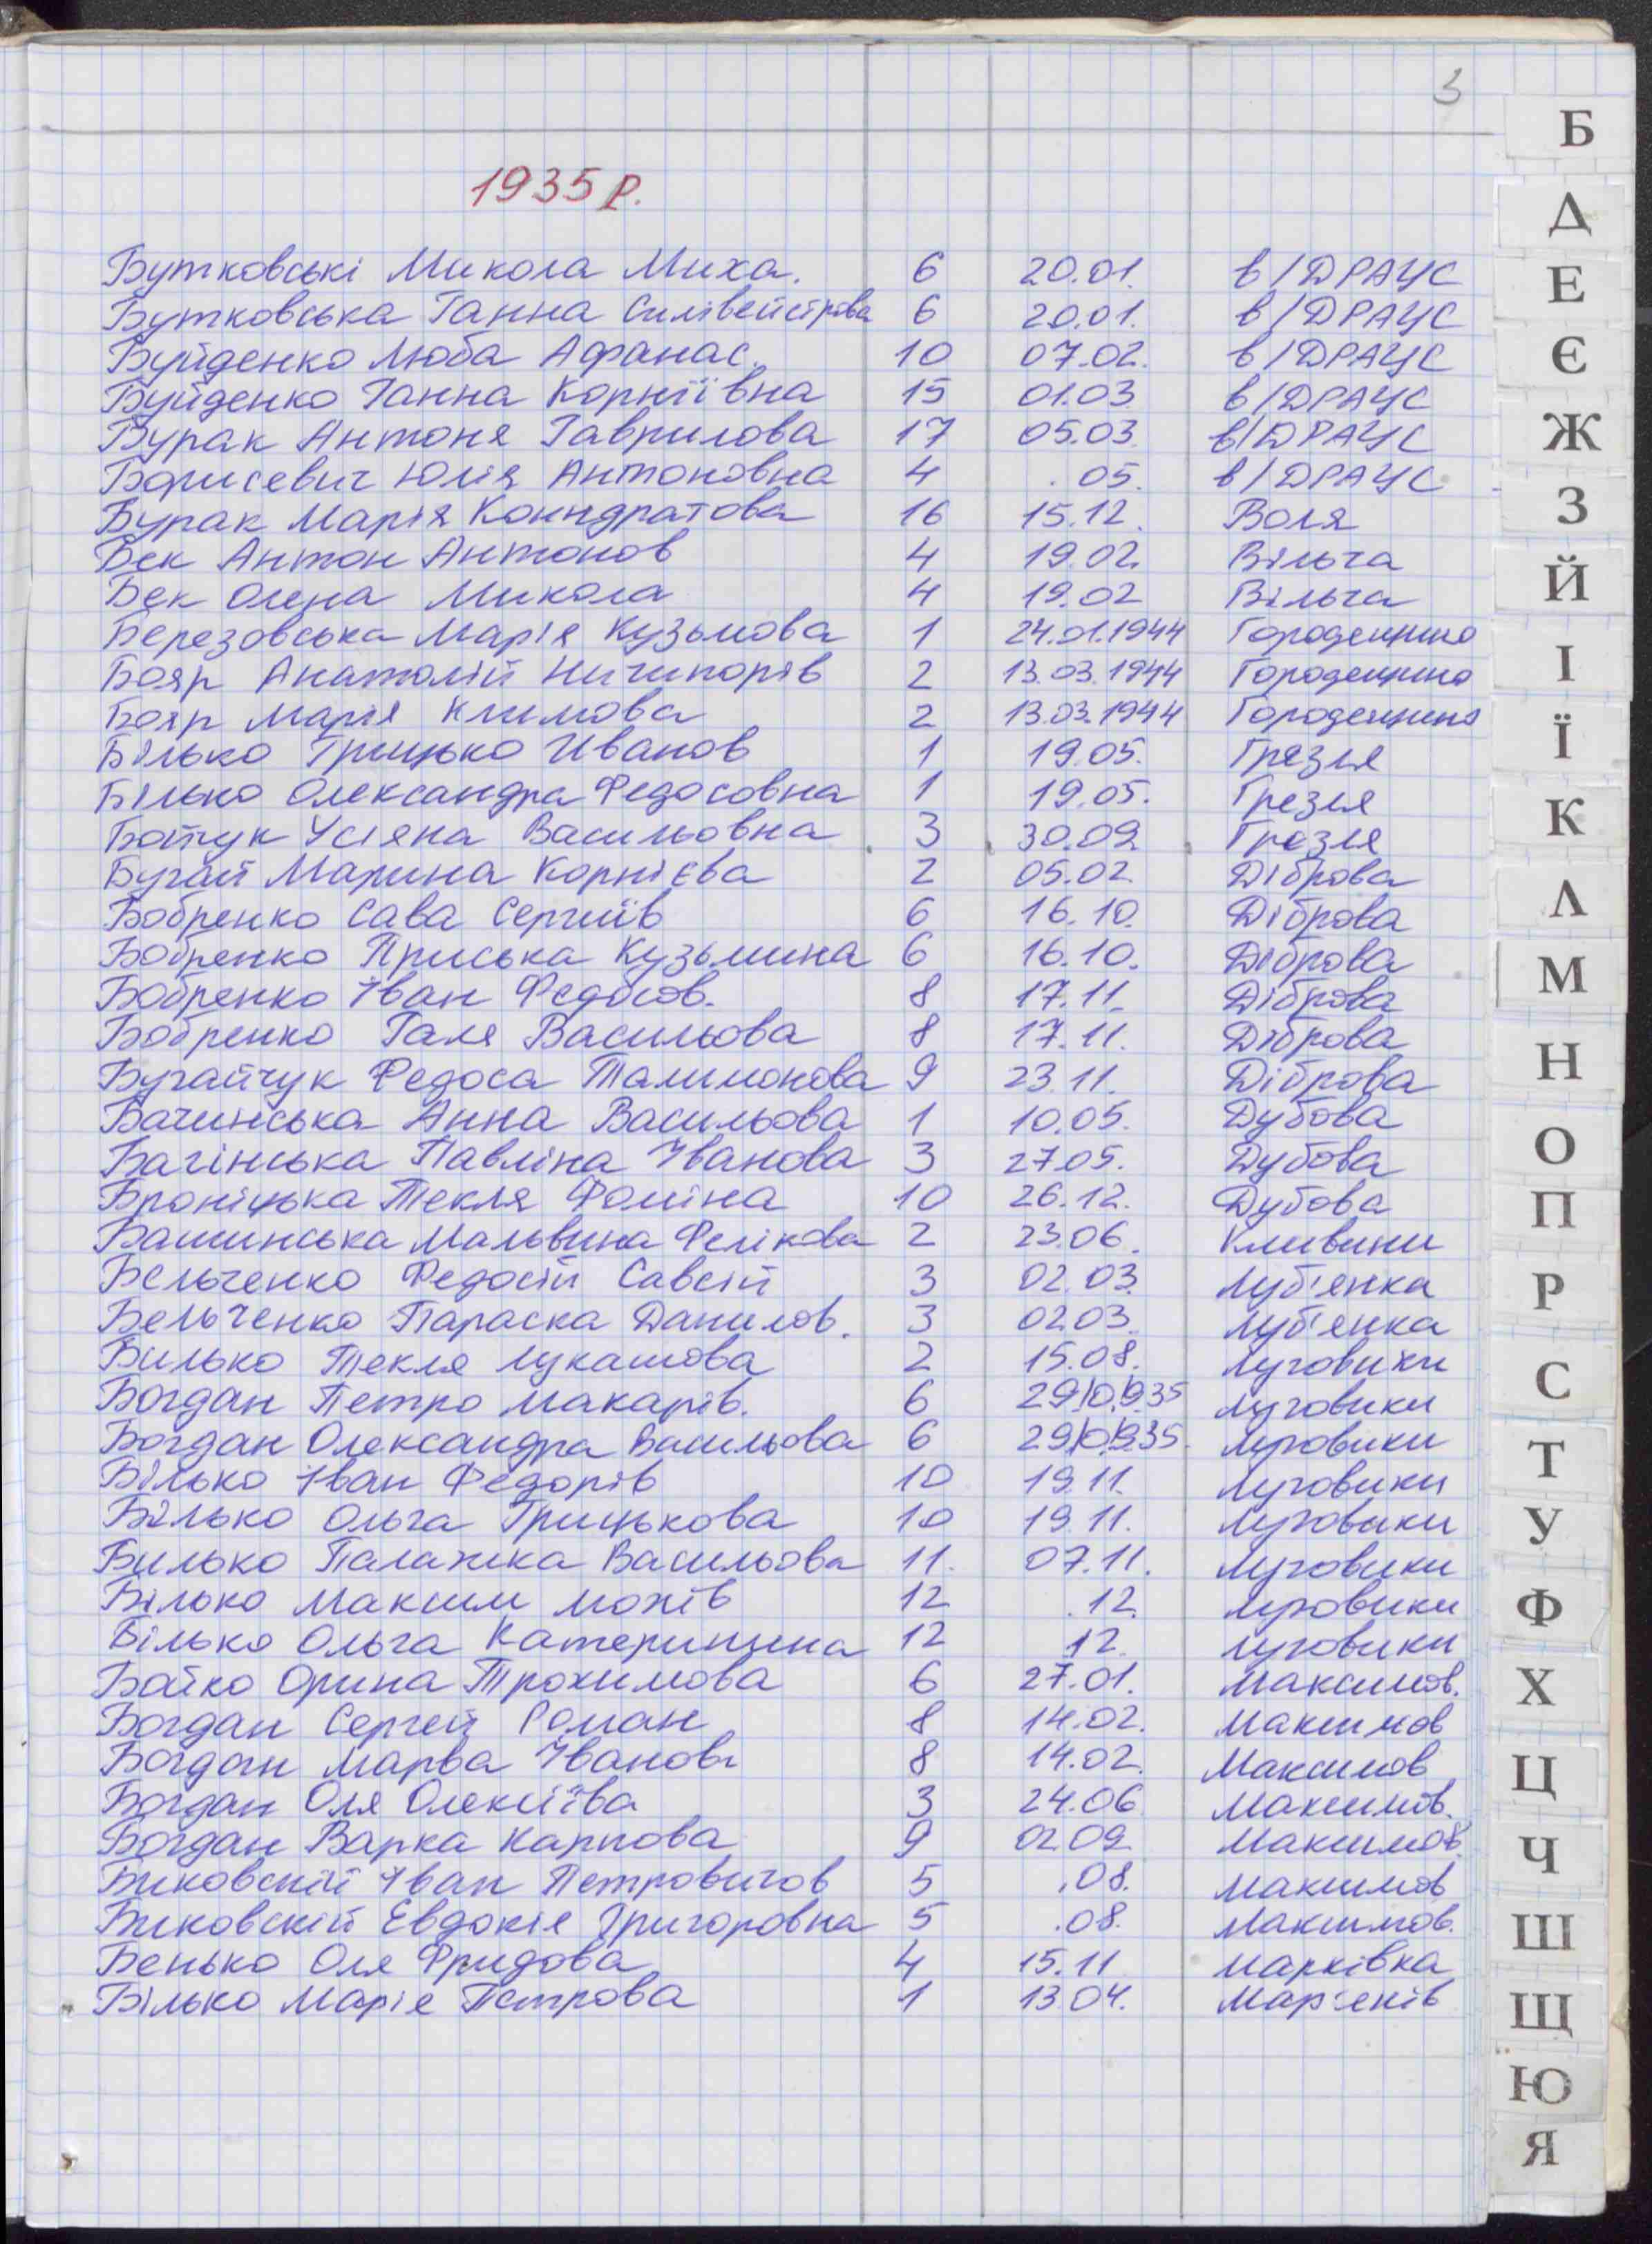 3
1935 р.
Бутковські Микола Миха. 6 20.01. в/ДРАЦС
Бутковська Ганна Силівейстрова 6 20.01. в/ДРАЦС
Буйденко Люба Афанас. 10 07.02. в/ДРАЦС
Буйденко Ганна Корніївна 15 01.03 в/ДРАЦС
Бурак Антоня Гаврилова 17 05.03. в/ДРАЦС
Борисевич Юлія Антоновна 4 . 05. в/ДРАЦС
Бурак Марія Конндратова 16 15.12. Воля
Бек Антон Антонов 4 19.02. Вільча
Бек Олена Микола 4 19.02 Вільча
Березовська Марія Кузьмова 1 24.01.1944 Городещино
Бояр Анатолій Ничипорів 2 13.03.1944 Городещина
Бояр Марія Климова 2 13.03.1944 Городещина
Білько Грицько Иванов 1 19.05. Грезля
Білько Олександра Федосовна 1 19.05. Грезля
Ботук Усіяна Васильовна 3 30.09. Грезля
Бугай Марина Корнієва 2 05.02 Діброва
Бобренко Сава Сергиїв 6 16.10. Діброва
Бобренко Приська Кузьмина 6 16.10. Діброва
Бобренко Іван Федосов. 8 17.11. Діброва
Бобренко Галя Васильова 8 17.11. Діброва
Бугайчук Федоса Талимонова 9 23.11. Діброва
Бачинська Анна Васильова 1 10.05. Дубова
Багінська Павліна Іванова 3 27.05. Дубова
Броніцька Текля Фоміна 10 26.12. Дубова
Башинська Мальвина Фелікова 2 23.06. Кливини
Бельченко Федосій Савсій 3 02.03. Луб'янка
Бельченко Параска Данилов. 3 02.03. Луб'янка
Билько Текля Лукашова 2 15.08. Луговики
Богдан Петро Макарів. 6 29.10.1935 Луговики
Богдан Олександра Васильова 6 29.10.1935. Луговики
Білько Іван Федорів 10 19.11. Луговики
Білько Ольга Грицькова 10 19.11. Луговики
Билько Палажка Васильова 11. 07.11. Луговики
Білько Максим Мохів 12 .12. Луговики
Білько Ольга Катеринина 12 12. Луговики
Бойко Орина Трохимова 6 27.01. Максимов.
Богдан Сергей Роман 8 14.02. Максимов
Богдан Марва Іванов 8 14.02. Максимов
Богдан Оля Олексіїва 3 24.06 Максимов.
Богдан Варка Карпова 9 02.09 Максимов
Биковскій Іван Петровичов 5 .08. Максимов
Биковскій Евдокія Григоровна 5 .08. Максимов.
Бенько Оля Фридова 4 15.11 Марківка
Білько Марія Петрова 1 13.04. Мар'янів
Б
Д
Е
Є
Ж
З
Й
І
Ї
К
Л
М
Н
О
П
Р
С
Т
У
Ф
Х
Ц
Ч
Ш
Щ
Ю
Я